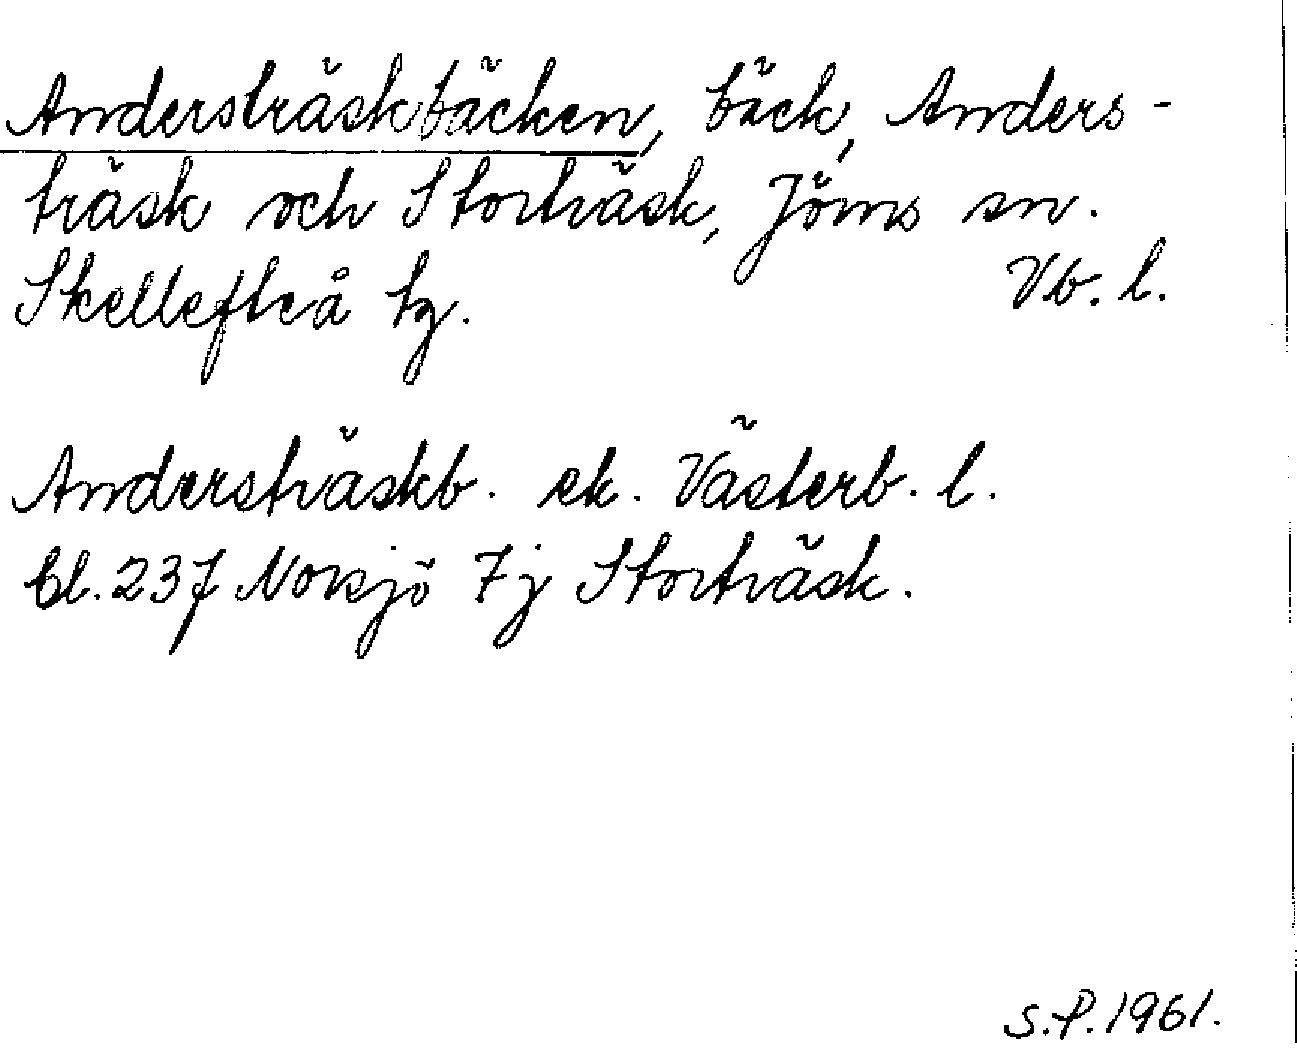 Andersträskbäcken, bäck, Anders-
träsk och Storträsk, Jörns sn.
Skellefteå tg. Vb. l.
Andersträskb. ek. Västerb. l.
bl. 237 Norsjö 7j Storträsk.
S.P. 1961.